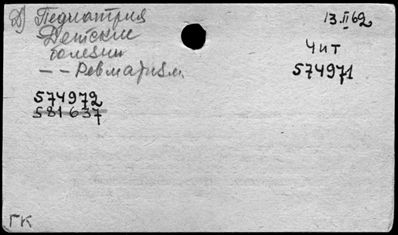 Д) Педиатрия
13.II 62
Детские
болезни
Чит
-- Ревматизм
574971
574972
581637
ГК